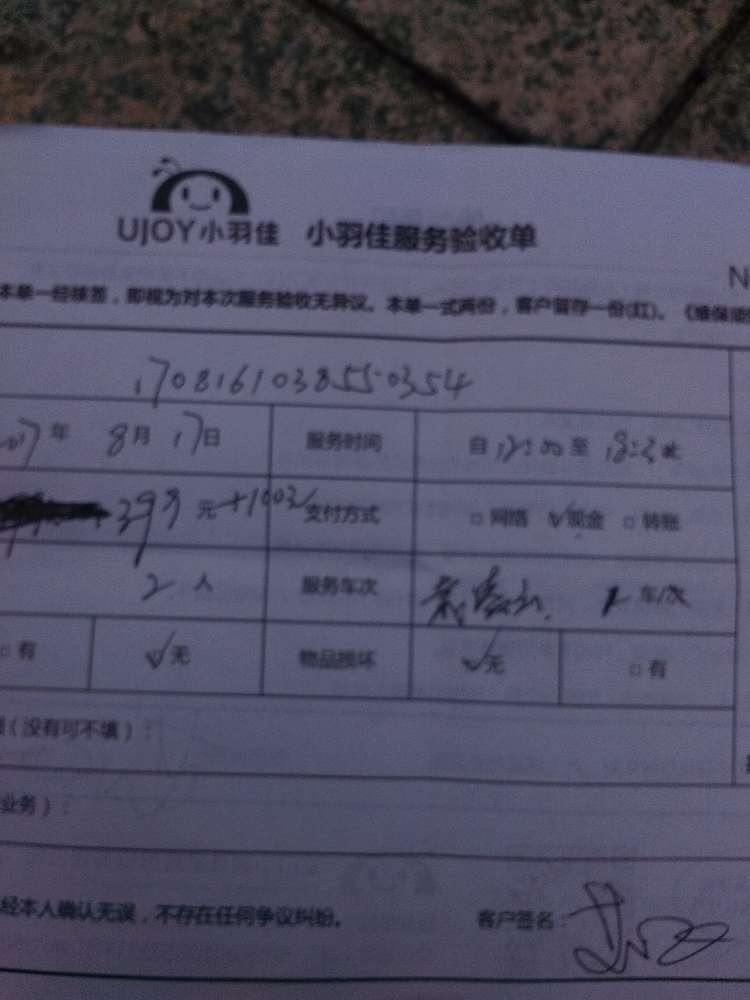 UJOY小羽佳 小羽佳服务验收单
N
本单一经核签，即视为对本次服务验收无异议。本单一式两份，客户留存一份(红)。《维保须
170816103855035​4
年 8月 17日 服务时间 自 12:00 至
399 元 +100 支付方式 □ 网络 ✓现金 □ 转账
2 人 服务车次 车/次
□ 有 ✓无 物品损坏 ✓无 □ 有
(没有可不填)：
业务)：
经本人确认无误，不存在任何争议纠纷。 客户签名：